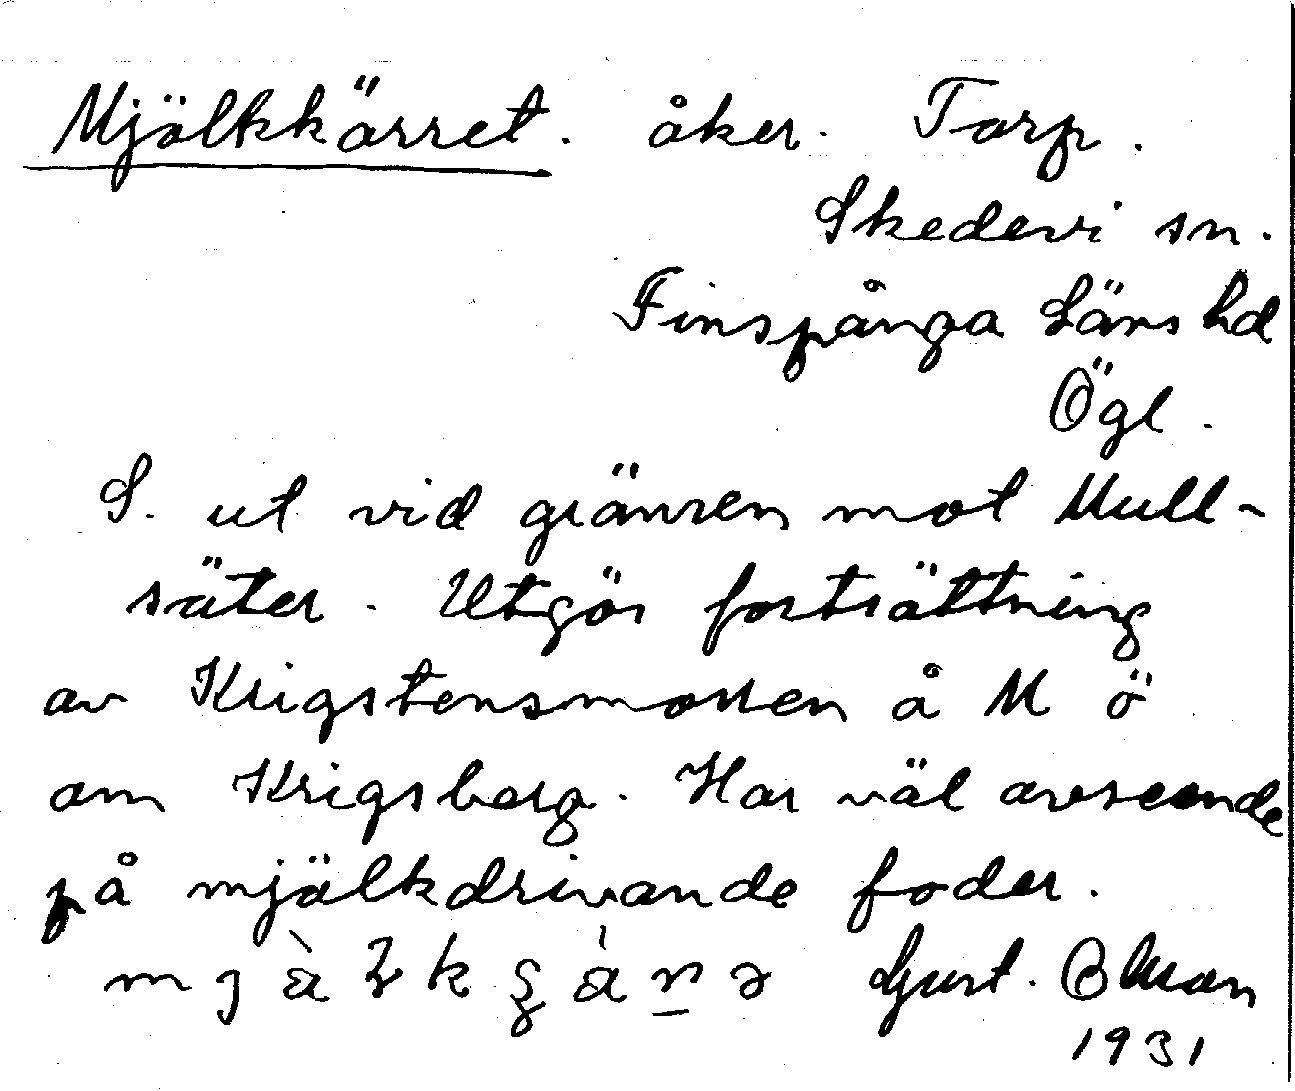 Mjölkkärret. åker. Torp.
Skedevi sn.
Finspånga Läns hd
Ögl.
S. ut vid gränsen mot Mull-
säter. Utgör fortsättning
av Krigstensmossen å M ö
om Krigsberg. Har väl avseende
på mjölkdrivande foder.
Gust. Olsson
1931